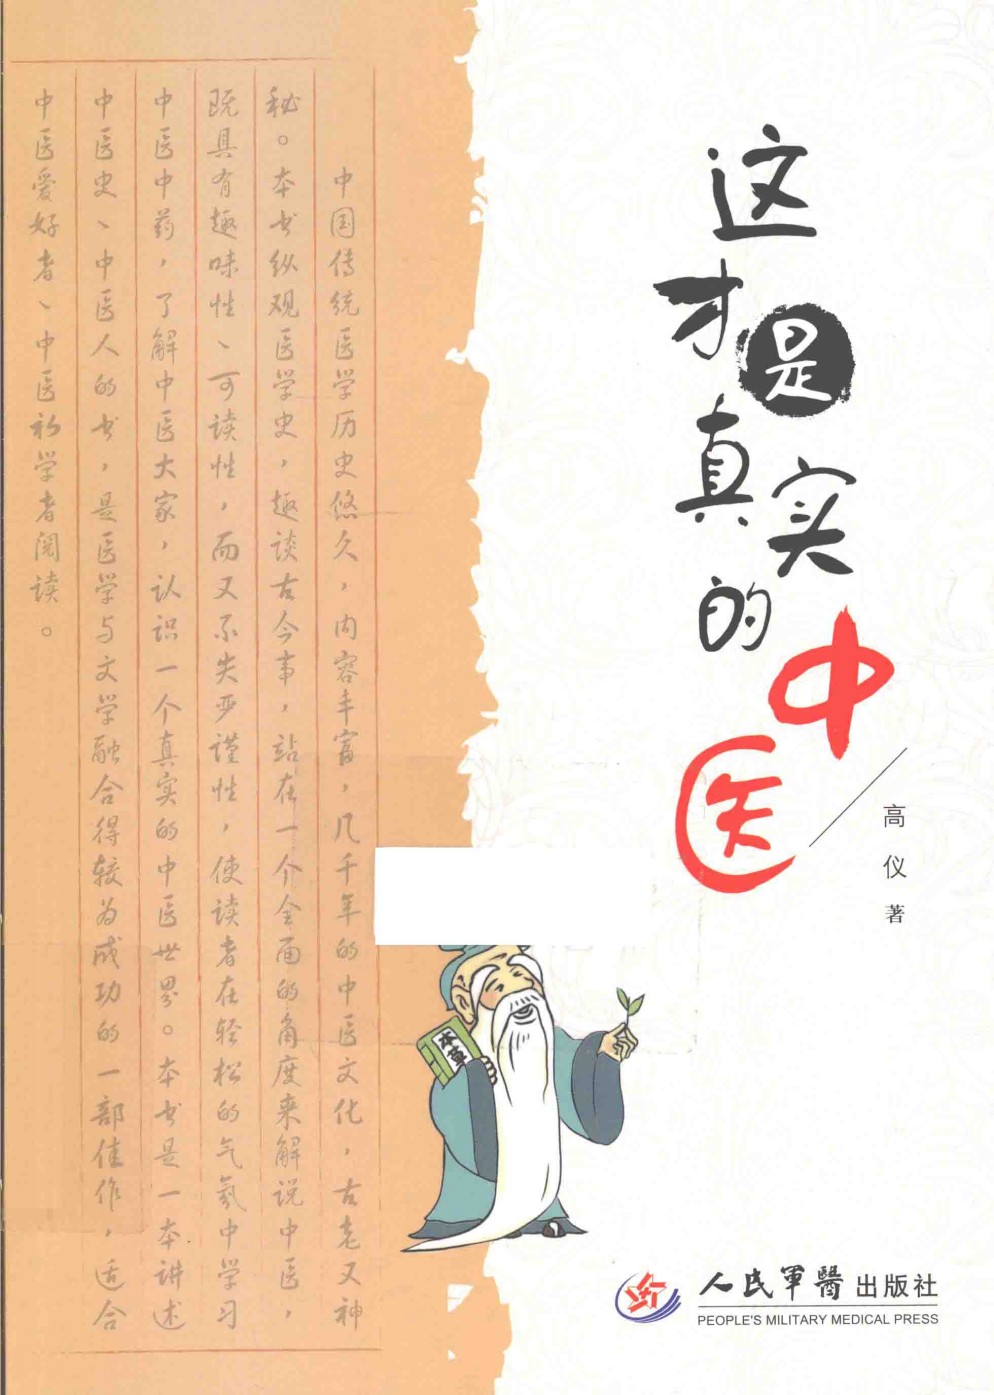 这
才是
真实
的
中
医
高仪 著
中国传统医学历史悠久，内容丰富，几千年的中医文化，古老又神
秘。本书纵观医学史，趣谈古今事，站在一个全面的角度来解说中医，
既具有趣味性、可读性，而又不失严谨性，使读者在轻松的气氛中学习
中医中药，了解中医大家，认识一个真实的中医世界。本书是一本讲述
中医史、中医人的书，是医学与文学融合得较为成功的一部佳作，适合
中医爱好者、中医初学者阅读。
本草
人民軍醫出版社
PEOPLE'S MILITARY MEDICAL PRESS